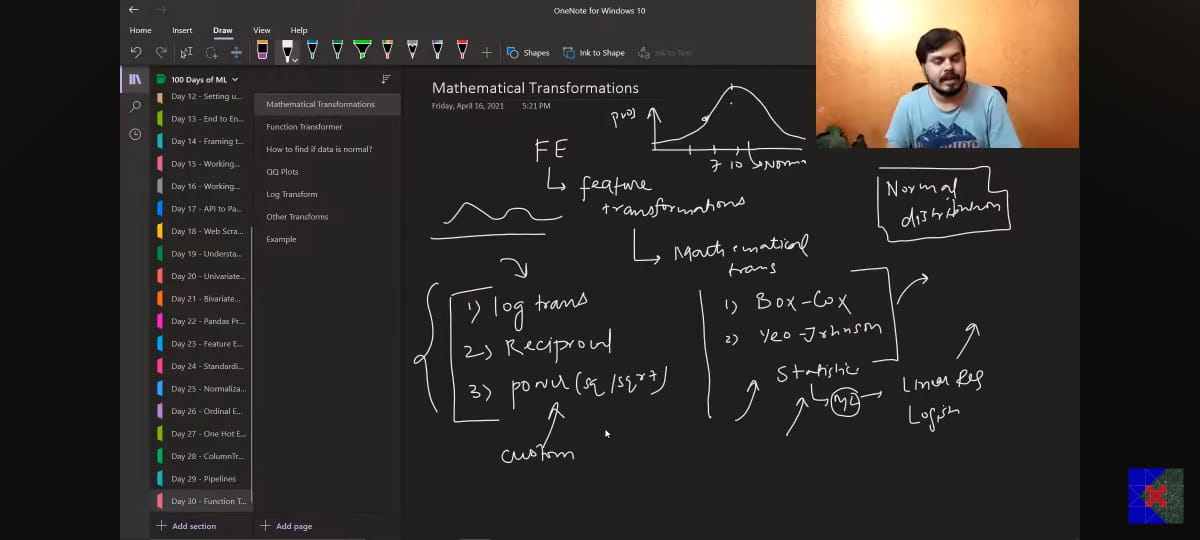 OneNote for Windows 10
Home Insert Draw View Help
Shapes Ink to Shape Ink to Text
100 Days of ML
Day 12 - Setting u...
Day 13 - End to En...
Day 14 - Framing t...
Day 15 - Working...
Day 16 - Working...
Day 17 - API to Pa...
Day 18 - Web Scra...
Day 19 - Understa...
Day 20 - Univariate...
Day 21 - Bivariate...
Day 22 - Pandas Pr...
Day 23 - Feature E...
Day 24 - Standardi...
Day 25 - Normaliza...
Day 26 - Ordinal E...
Day 27 - One Hot E...
Day 28 - ColumnTr...
Day 29 - Pipelines
Day 30 - Function T...
Add section
Mathematical Transformations
Function Transformer
How to find if data is normal?
QQ Plots
Log Transform
Other Transforms
Example
Add page
Mathematical Transformations
Friday, April 16, 2021 5:21 PM
FE
feature
transformations
Mathematical
trans
7 10
Normal
distribution
1) log trans
2) Reciprocal
3) power (sq/sqrt)
custom
1) Box-Cox
2) Yeo-Johnson
Statistics
ML
Linear Reg